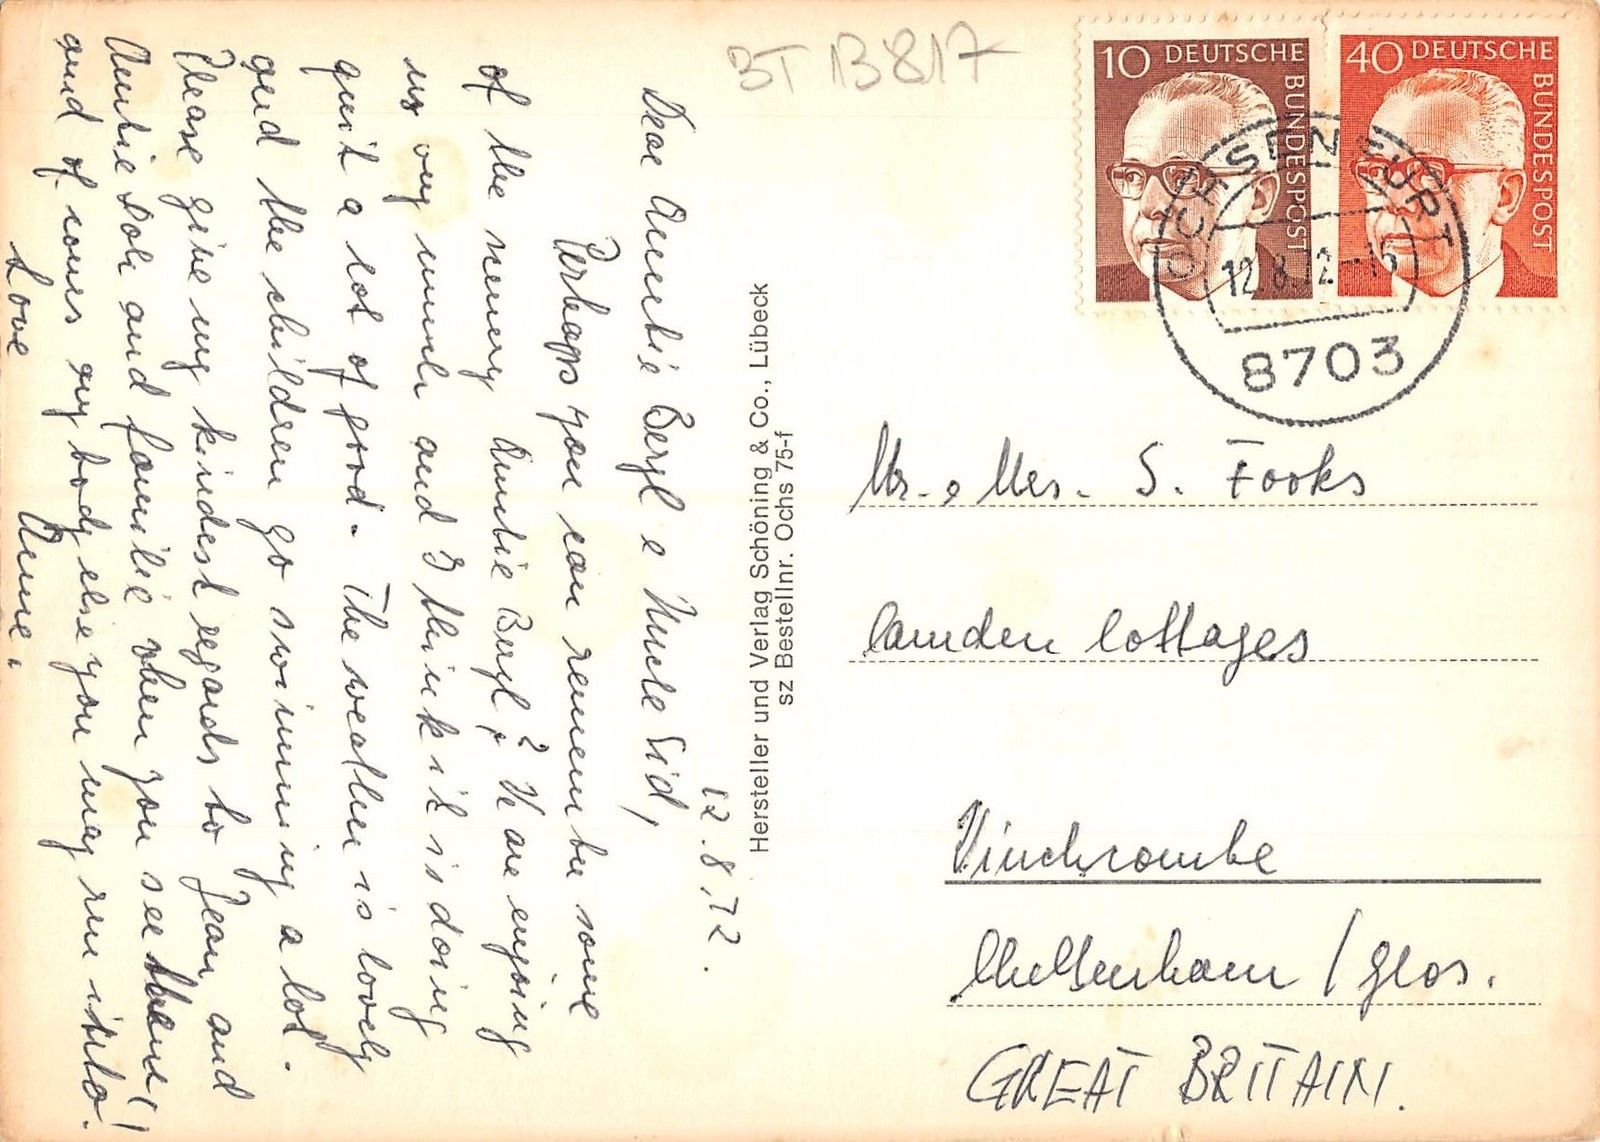 BT B 817
12.8.72.
Dear Auntie Beryl & Uncle Sid,
Perhaps you can remember some
of the scenery Auntie Beryl? We are enjoying
us very much and I think it is doing
quit a lot of good. The weather is lovely
and the children go swimming a lot.
Please give my kindest regards to Jean and
Auntie and familie when you see them!
and of cours any body else you may run into!
Love Anne.
Hersteller und Verlag Schöning & Co., Lübeck
sz Bestellnr. Ochs 75-f
10 DEUTSCHE BUNDESPOST
40 DEUTSCHE BUNDESPOST
OCHSENFURT
12.8.72-15
8703
Mr. & Mrs. S. Fooks
Camden Cottages
Winchcombe
Cheltenham / Glos.
GREAT BRITAIN.